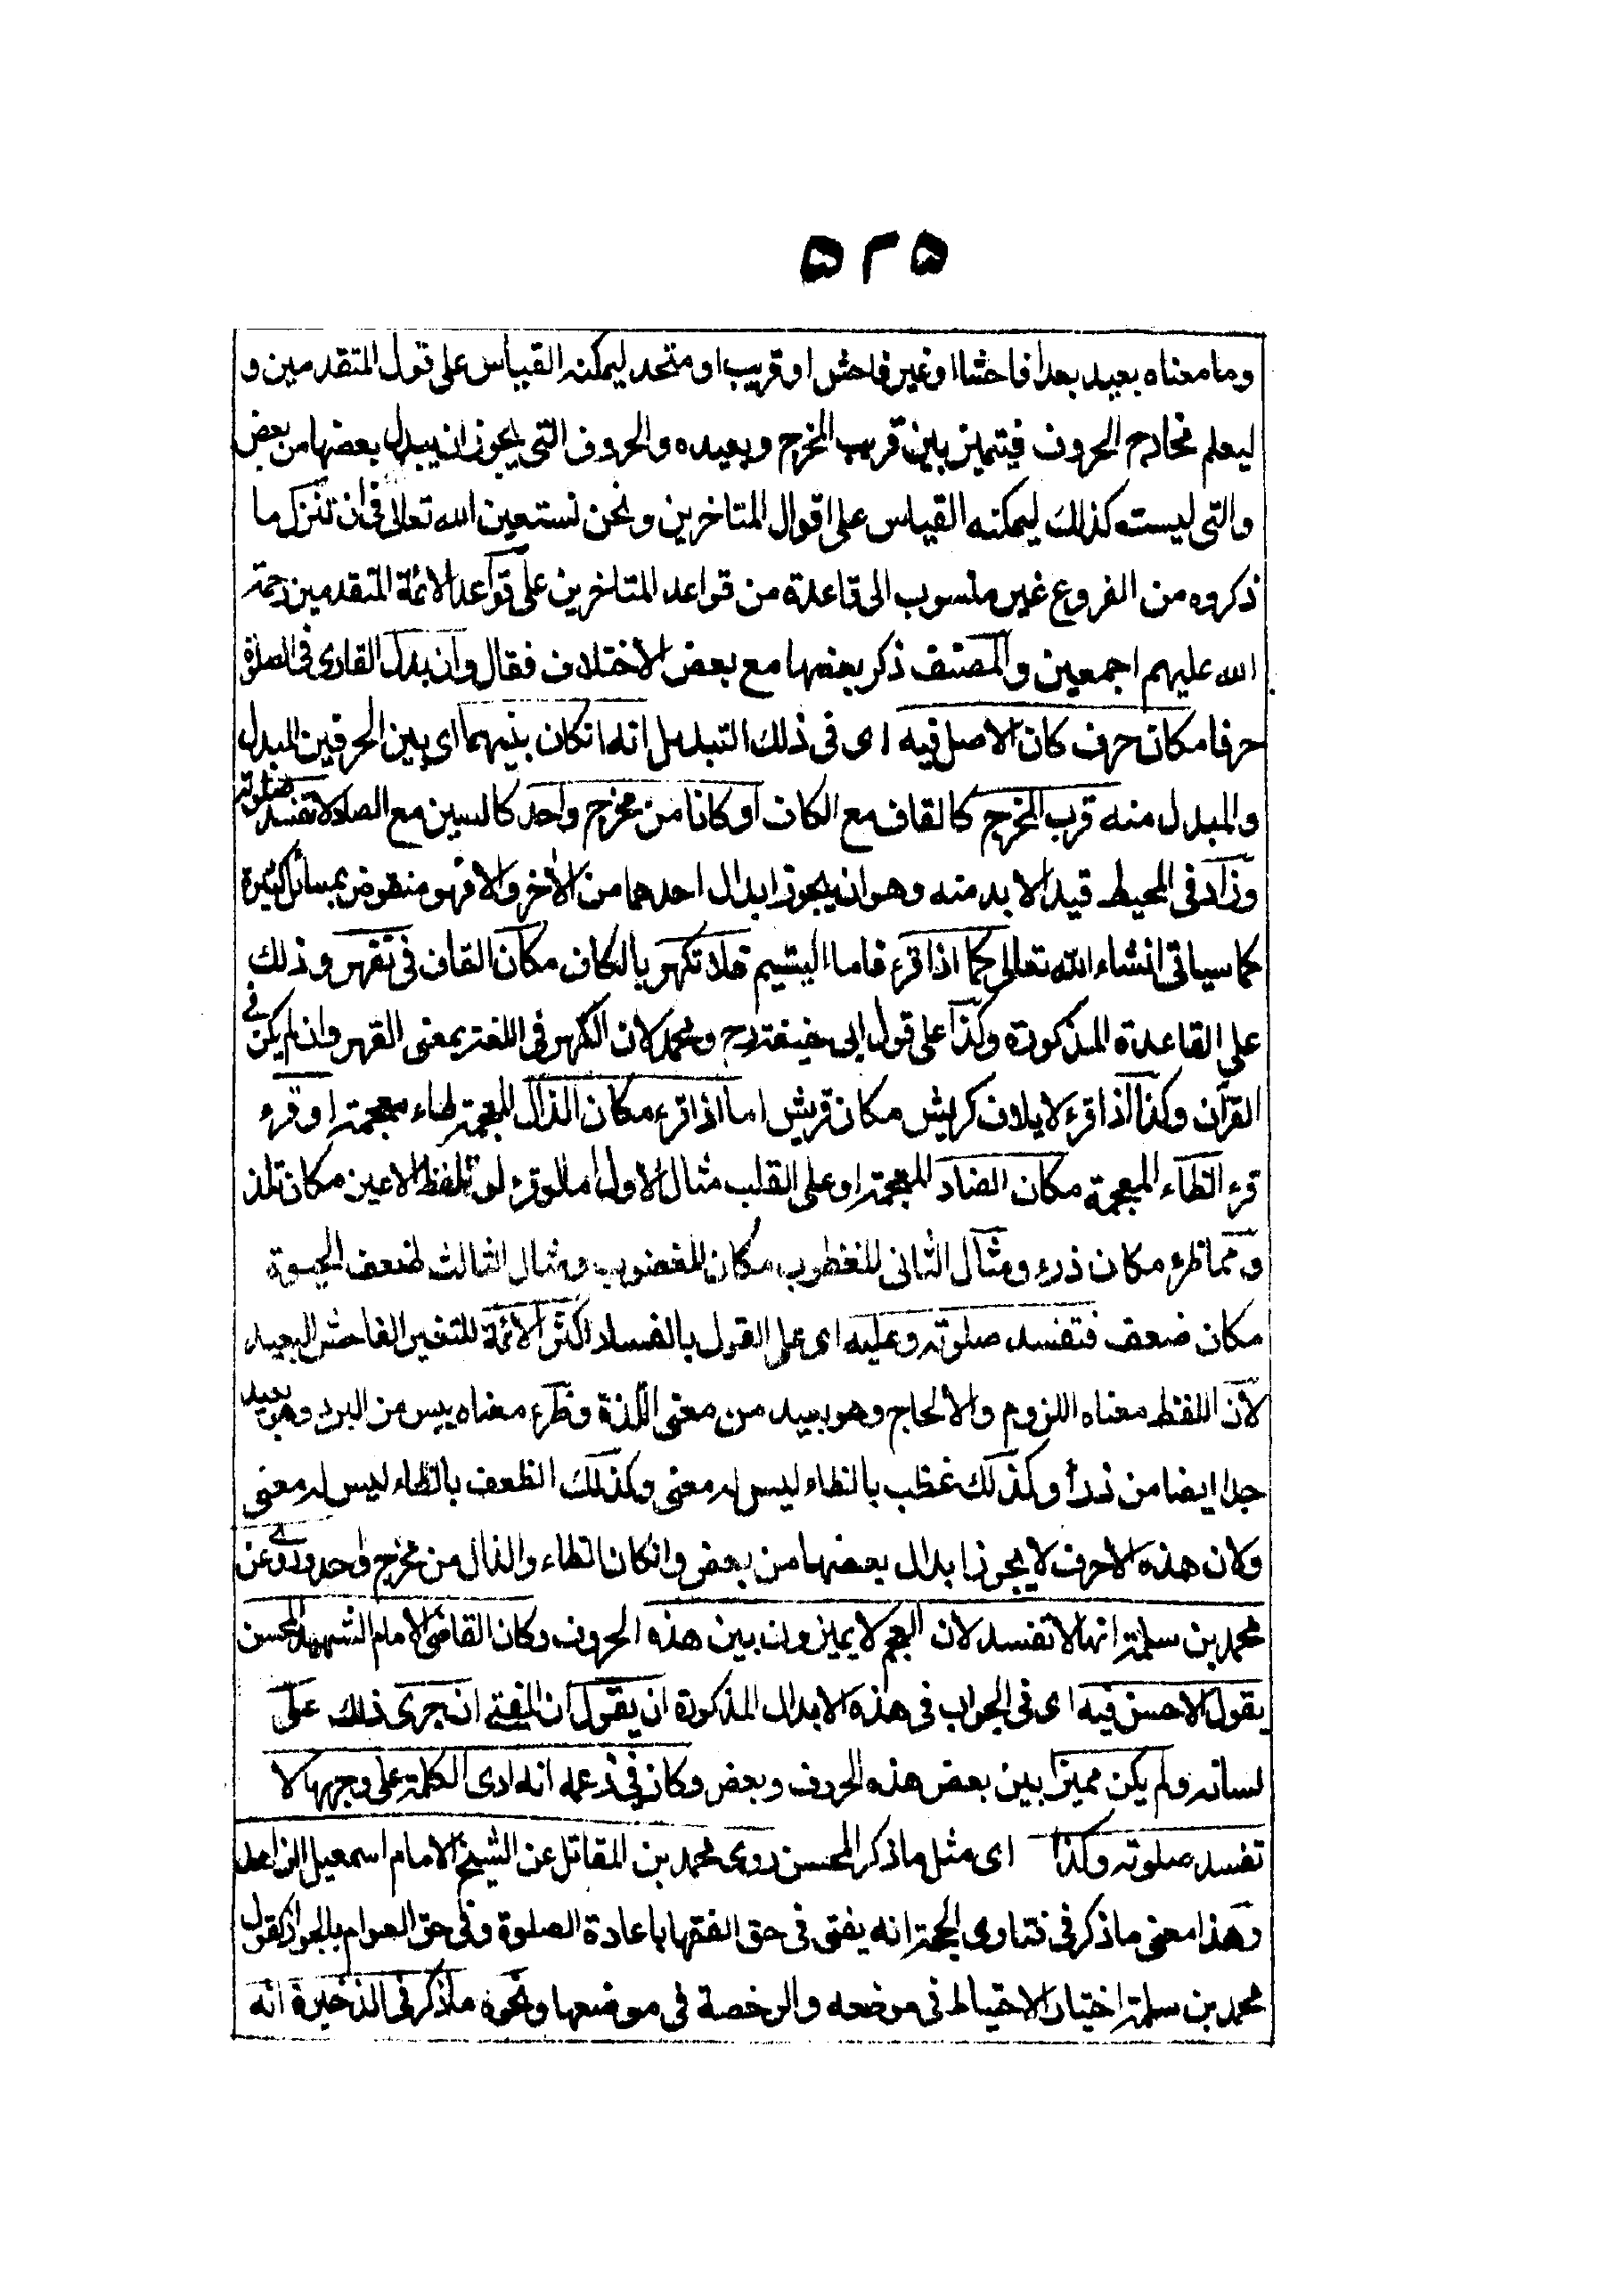 ٥٢٥
وما معناه بعيد بعدا فاحشا او غير فاحش او قريب او متحد ليمكنه القياس على قول المتقدمين و
ليعلم مخارج الحروف فيتميز بين قريب المخرج وبعيده والحروف التى يجوز ان يبدل بعضها من بعض
والتى ليست كذلك ليمكنه القياس على اقوال المتاخرين ونحن نستعين الله تعالى فى ان ننزل ما
ذكروه من الفروع غير منسوب الى قاعدة من قواعد المتاخرين على قواعد الائمة المتقدمين رحمة
الله عليهم اجمعين والمصنف ذكر بعضها مع بعض الاختلاف فقال وان بدل القارى فى الصلوة
حرفا مكان حرف كان الاصل فيه اى فى ذلك التبديل انه انكان بينهما اى بين الحرفين المبدل
والمبدل منه قرب المخرج كالقاف مع الكاف او كانا من مخرج واحد كالسين مع الصاد لا تفسد صلوته
وزاد فى المحيط قيدا لا بد منه وهو ان يجوز ابدال احدهما من الاخر والا فهو منقوض بمسائل كثيرة
كما سياتى انشاء الله تعالى كما اذا قرء فاما اليتيم فلا تكهر بالكاف مكان القاف فى تقهر وذلك
على القاعدة المذكورة وكذا على قول ابى حنيفة رح ومحمد لان الكهر فى اللغة بمعنى القهر وان لم يكن فى
القرآن وكذا اذا قرء لايلاف كريش مكان قريش اما اذا قرء مكان الذال المعجمة ظاء معجمة او قرء
قرء الظاء المعجمة مكان الضاد المعجمة او على القلب مثال الاول ما لو قرء لو تلفظ الاعين مكان تلذ
ومما ظرء مكان ذرء ومثال الثانى المغظوب مكان المغضوب ومثال الثالث ظعف الحيوة
مكان ضعف فتفسد صلوته وعليه اى على القول بالفساد اكثر الائمة للتغير الفاحش البعيد
لان اللفظ معناه اللزوم والالحاح وهو بعيد من معنى اللذة وظرء معناه يبس من البرد وهو بعيد
جدا ايضا من ذرأ وكذلك غظب بالظاء ليس له معنى وكذلك الظعف بالظاء ليس له معنى
ولان هذه الاحرف لا يجوز ابدال بعضها من بعض وانكان الظاء والذال من مخرج واحد وروى عن
محمد بن سلمة انها لا تفسد لان العجم لا يميزون بين هذه الحروف وكان القاضى الامام الشهيد المحسن
يقول الاحسن فيه اى فى الجواب فى هذه الابدال المذكورة ان يقول ان المفتى ان جرى ذلك على
لسانه ولم يكن مميزا بين بعض هذه الحروف وبعض وكان فى زعمه انه ادى الكلمة على وجهها لا
تفسد صلوته وكذا اى مثل ما ذكر المحسن روى محمد بن المقاتل عن الشيخ الامام اسمعيل الزاهد
وهذا معنى ما ذكر فى فتاوى الحجة انه يفتى فى حق الفقها باعادة الصلوة وفى حق العوام بالجواز كقول
محمد بن سلمة اختيار الاحتياط فى موضعه والرخصة فى موضعها ونحوه ما ذكر فى الذخيرة انه